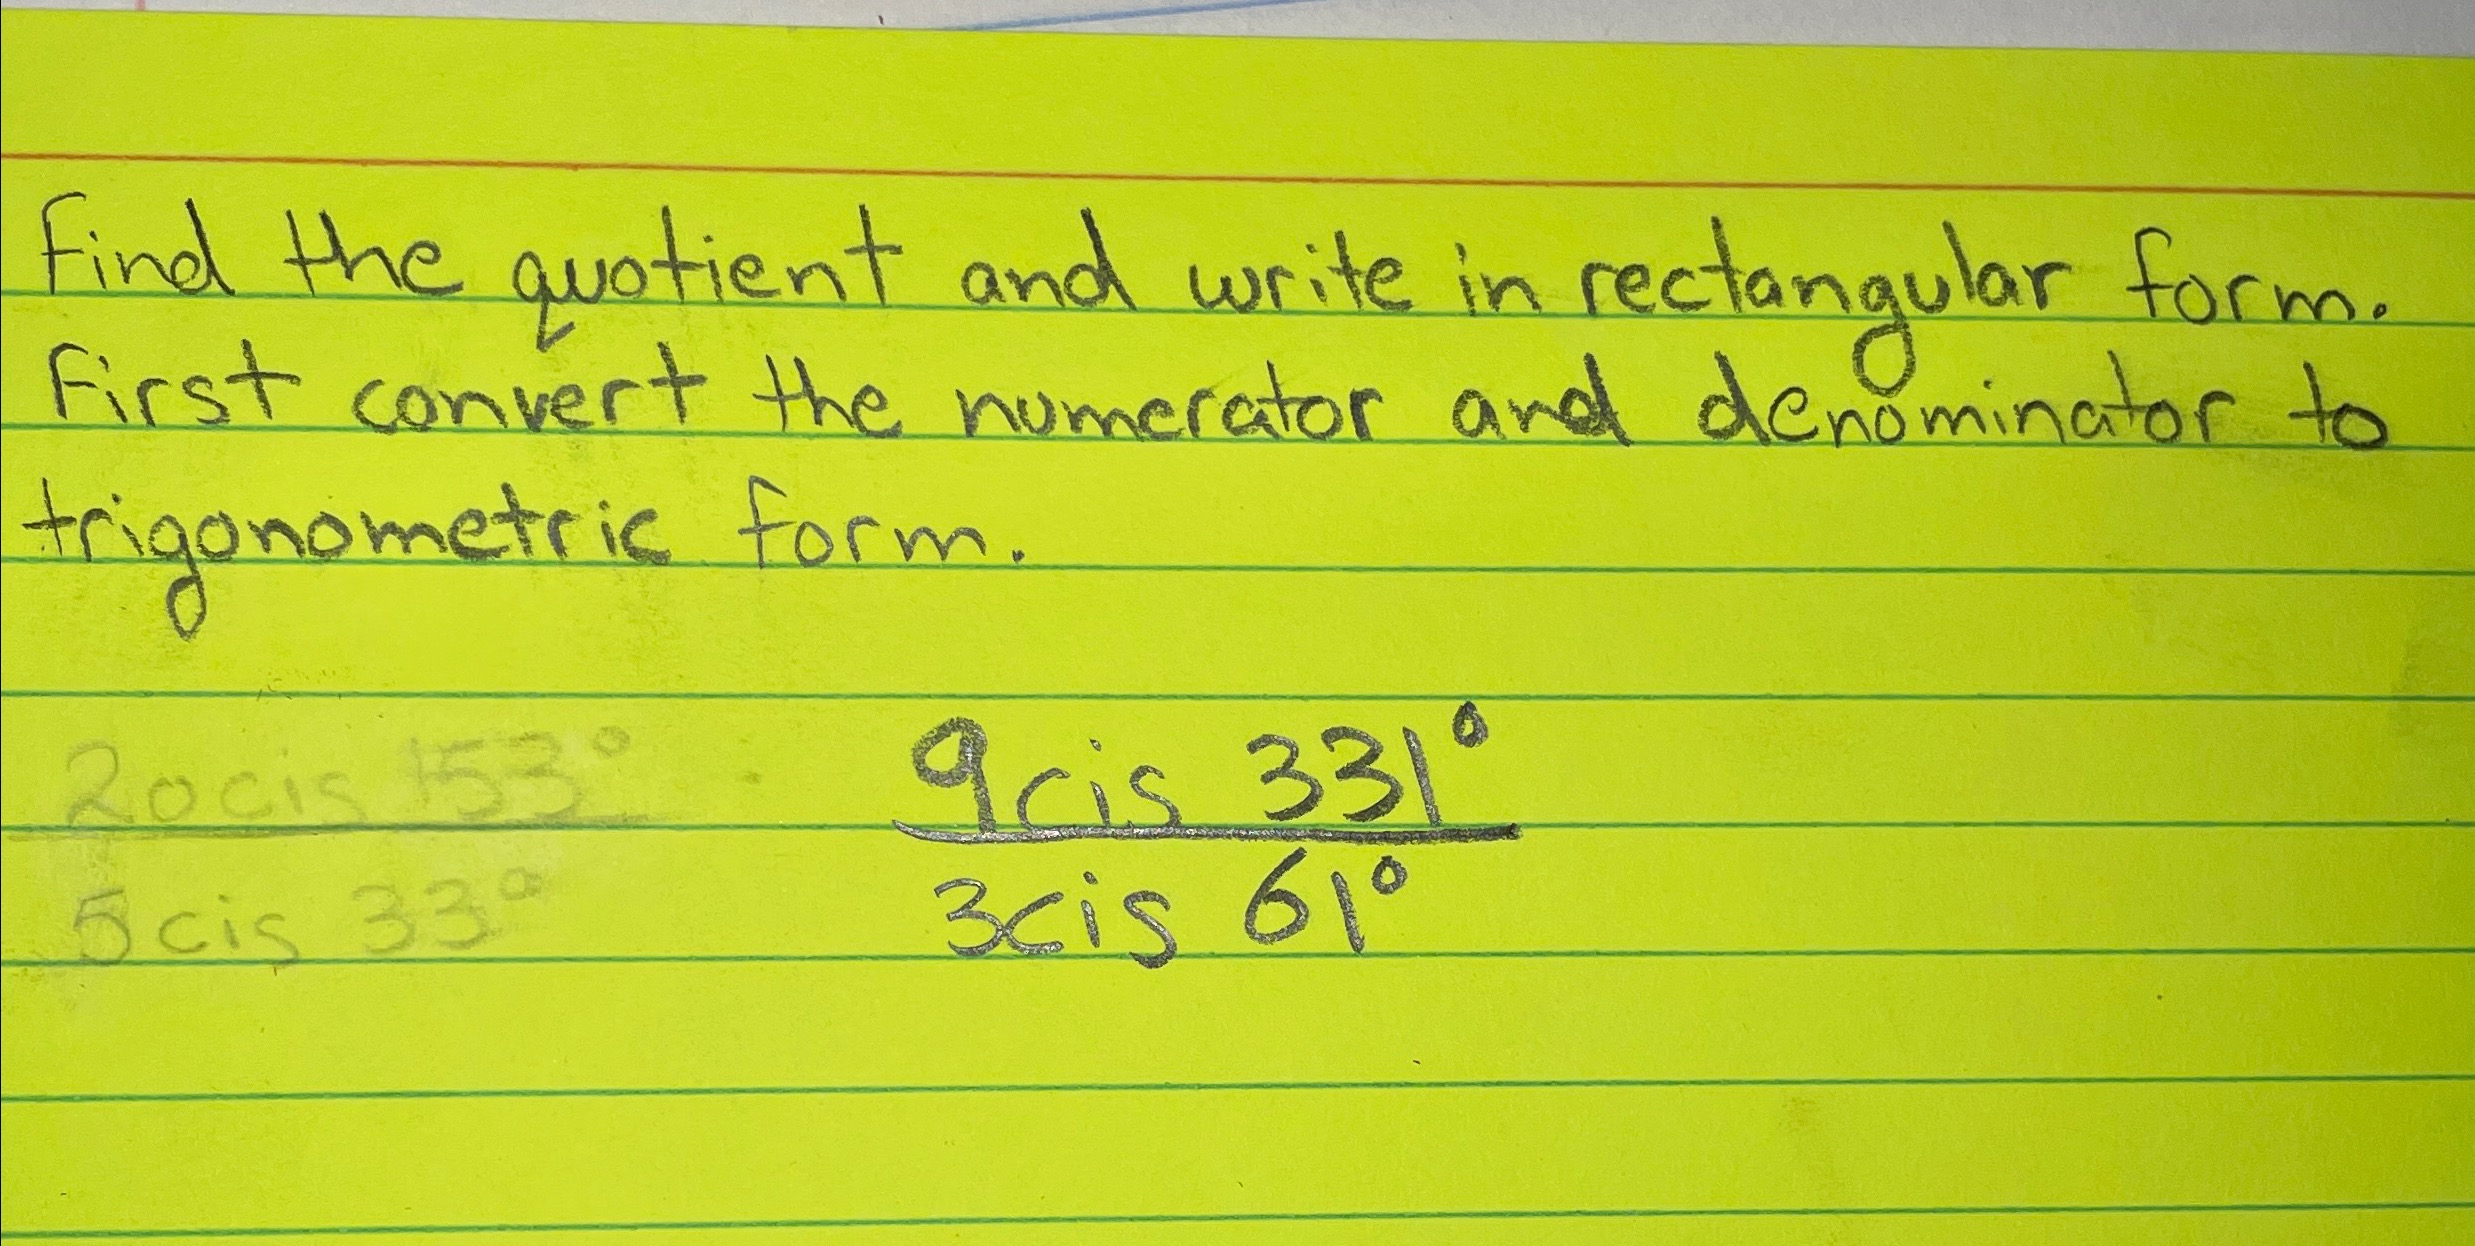 Find the quotient and write in rectangular form.
First convert the numerator and denominator to
trigonometric form.
20 cis 153°
5 cis 33°
9 cis 331°
3 cis 61°